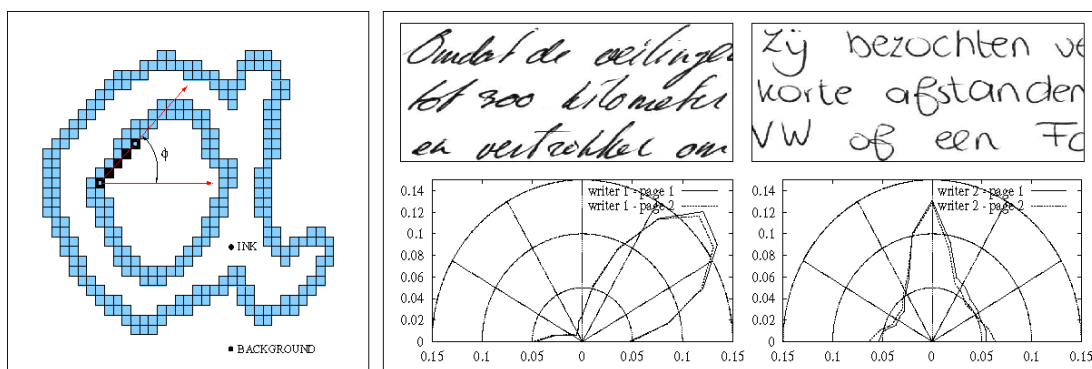 ϕ
INK
BACKGROUND
Omdat de veilingen
tot 300 kilometer
en vertrokken om
Zij bezochten ve
korte afstanden
VW of een Fo
writer 1 - page 1
writer 1 - page 2
0.15
0.12
0.1
0.08
0.06
0.04
0.02
0
0.15
0.1
0.05
0
0.05
0.1
0.15
writer 2 - page 1
writer 2 - page 2
0.15
0.12
0.1
0.08
0.06
0.04
0.02
0
0.15
0.1
0.05
0
0.05
0.1
0.15